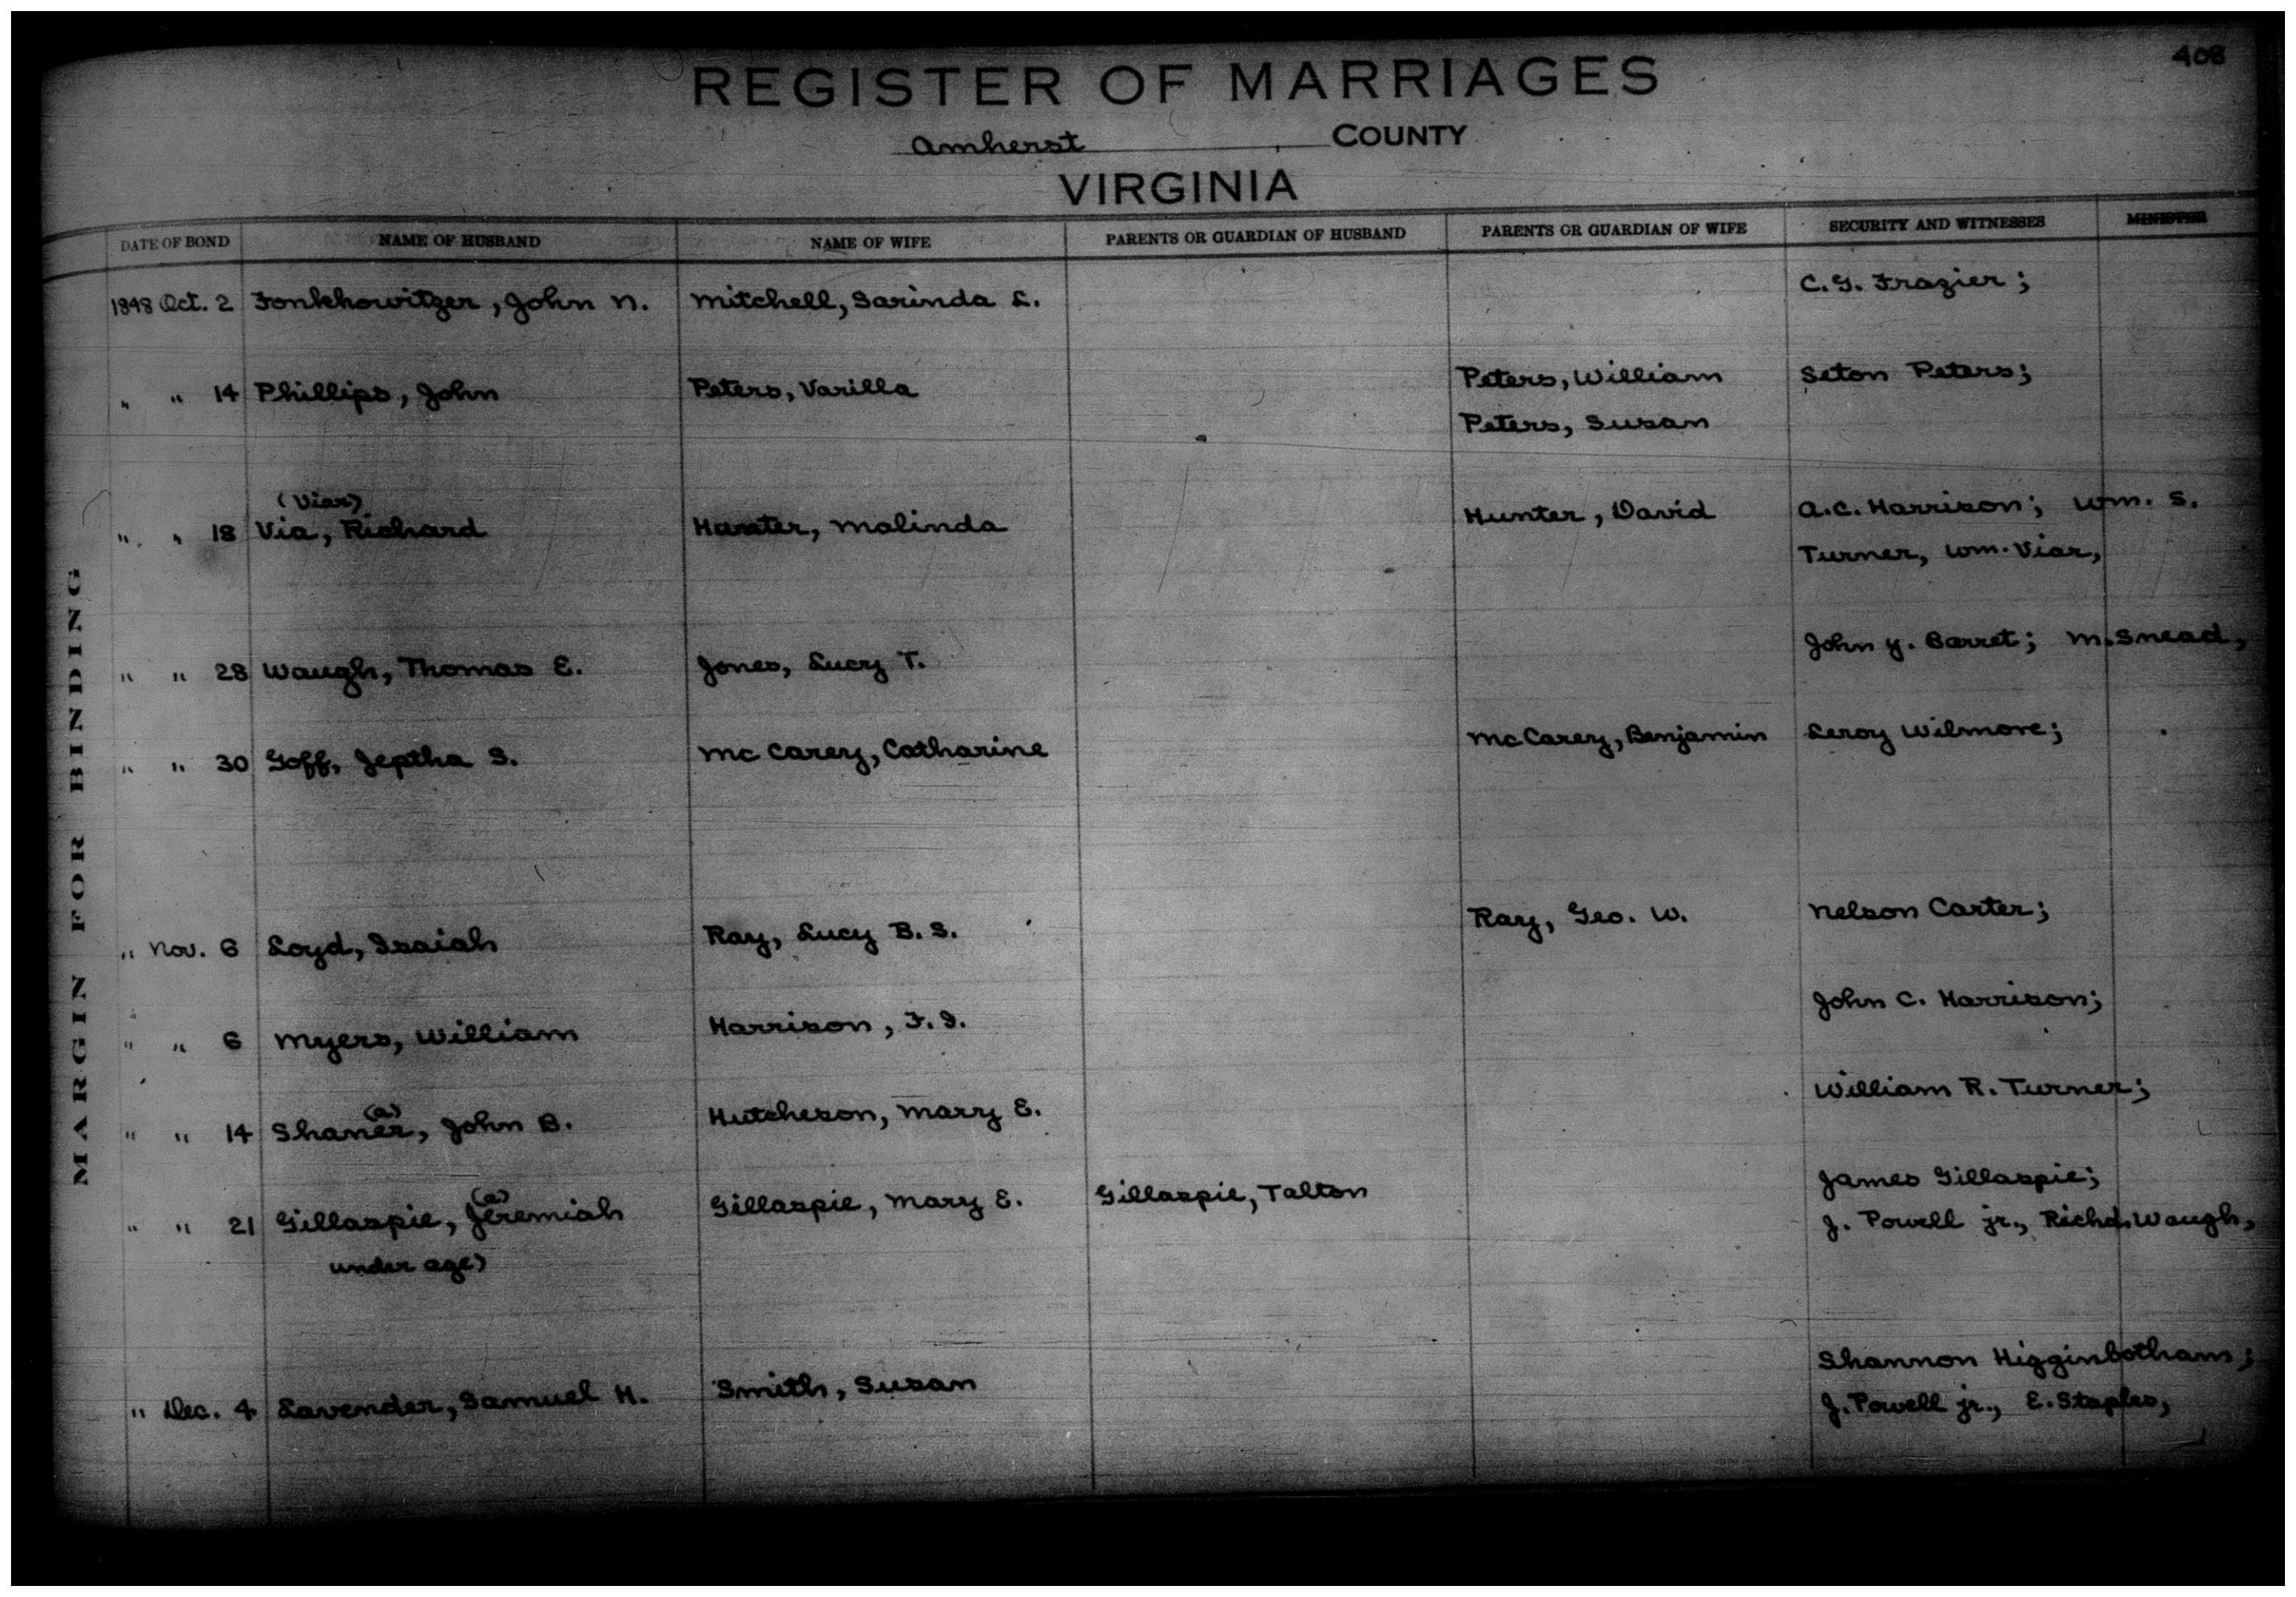 408
REGISTER OF MARRIAGES
Amherst COUNTY
VIRGINIA
DATE OF BOND NAME OF HUSBAND NAME OF WIFE PARENTS OR GUARDIAN OF HUSBAND PARENTS OR GUARDIAN OF WIFE SECURITY AND WITNESSES MINISTER
1848 Oct. 2 Fonkhowitzer, John N. Mitchell, Sarinda L. C.G. Frazier;
" " 14 Phillips, John Peters, Varilla Peters, William Seton Peters;
Peters, Susan
(Viar)
" " 18 Via, Richard Hunter, Malinda Hunter, David A.C. Harrison; Wm. S.
Turner, Wm. Viar,
" " 28 Waugh, Thomas E. Jones, Lucy T. John Y. Barret; M. Snead,
" " 30 Goff, Jeptha S. McCarey, Catharine McCarey, Benjamin Leroy Wilmore;
" Nov. 6 Loyd, Isaiah Ray, Lucy B. S. Ray, Geo. W. Nelson Carter;
" " 6 Myers, William Harrison, F. I. John C. Harrison;
(a)
" " 14 Shaner, John B. Hutcheson, Mary E. William R. Turner;
(a)
" " 21 Gillaspie, Jeremiah Gillaspie, Mary E. Gillaspie, Talton James Gillaspie;
under age) J. Powell jr., Richd. Waugh,
" Dec. 4 Lavender, Samuel H. Smith, Susan Shannon Higginbotham;
J. Powell jr., E. Staples,
MARGIN FOR BINDING